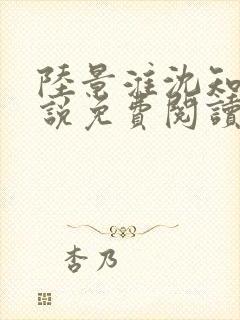 陸景淮沈知
說免費閱讀
杏乃